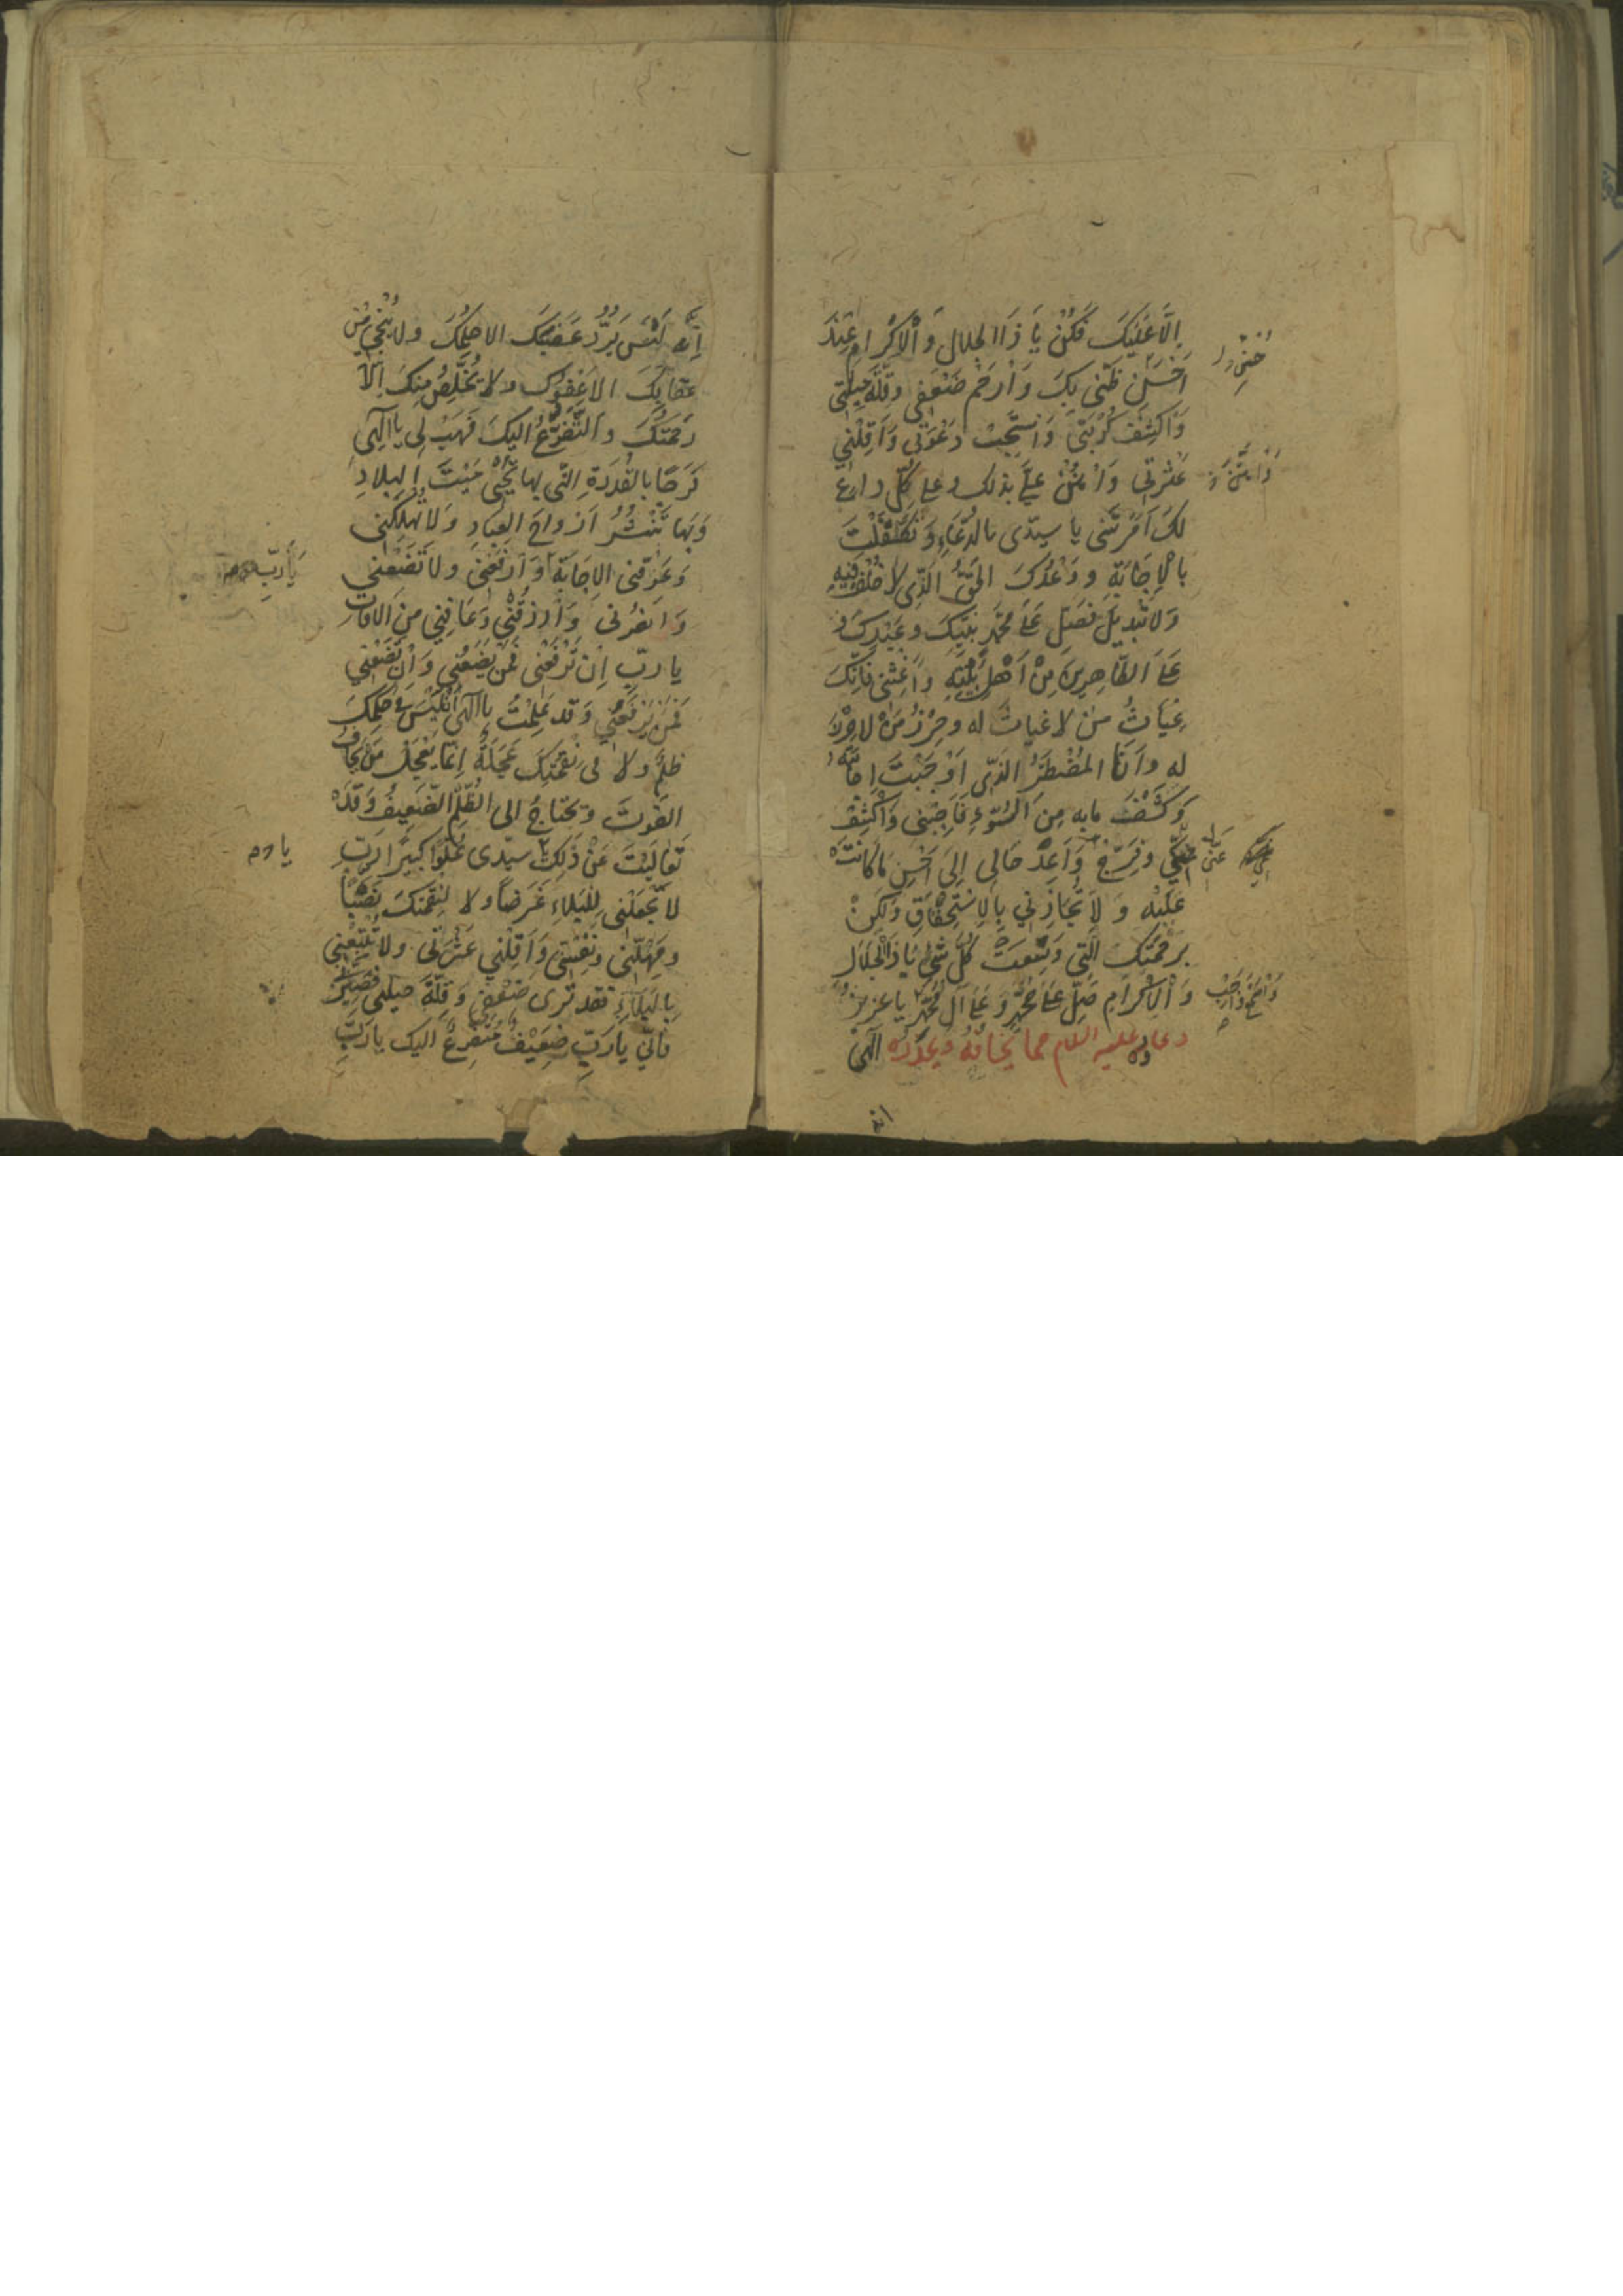 اِلَّا عَلَيْكَ فَكُنْ يَا ذَا الجلال وَالْاِكْرَامِ عِنْدَ
اَحْسَنِ ظَنّى بِكَ وَارْحَمْ ضَعْفِى وقِلَّةَ حِيلَتى
وَاكْشِفْ كُرْبَتى وَاسْتَجِبْ دَعْوَتى وَاَقِلْنِي
عَثْرتِى وَامْنُنْ عَلَىَّ بذلك وعلى كلِّ داعٍ
لكَ اَمَرْتَنى يا سيدى بالدُّعَاءِ وَتَكَفَّلْتَ
بالْاِجَابَةِ ووَعْدُكَ الحَقُّ الَّذِى لا خُلْفَ فِيهِ
وَلا تَبْدِيلَ فصَلِّ عَلىَ محمَّدٍ نبيِّكَ وعَبْدِكَ و
عَلىَ الطّاهِرِينَ مِنْ اَهْلِ بَيْتِهِ وَاَغِثْنى فَاِنَّكَ
غِيَاثُ مَنْ لا غياثَ له وحِرْزُ مَنْ لا حِرْزَ
له واَنَا المُضْطَرُّ الَّذِى اَوْجَبْتَ اِجَابَتَهُ
وَكَشْفَ مابه مِنَ السُّوءِ فَاَجِبْنِى وَاكْشِفْ
وفَرِّجْ وَاَعِدْ حَالى اِلىَ اَحْسَنِ مَا كَانَتْ
عَلَيْه وَلاَ تُجَازِنِي بِالاِسْتِحْقَاقِ وَلكِنْ
برحْمَتِكَ الَّتِى وَسِعَتْ كُلَّ شَىْءٍ يَا ذَا الْجَلالِ
وَالْاِكْرَامِ صَلِّ عَلىَ محمَّدٍ وَعَلىَ آلِ مُحَمَّدٍ يا عزيزُ
دعاؤه عليه السلام مما يخافُهُ ويحذَرُه الهى
انه
اِنَّه لَيْسَ يَرُدُّ غَضَبَكَ الا حِلْمُكَ ولا يُنْجِى مِنْ
عِقَابِكَ الا عَفْوُكَ ولا يُخَلِّصُ مِنْكَ اِلَّا
رَحْمَتُكَ والتَّضَرُّعُ اليكَ فَهَبْ لِى يا الهِى
فَرَجًا بالقُدْرَةِ التّى بها تُحْيِى مَيْتَ البِلادِ
وَبِهَا تَنْشُرُ اَرْوَاحَ العِبَادِ وَلا تُهْلِكْنِى
وَعَرِّفْنى الاِجَابَةَ وَارْفَعْنِى ولا تَضَعْنِي
وَانْصُرْنى وَارْزُقْنِي وَعَافِنِي مِنَ الآفاتِ
يا ربِّ اِنْ تَرْفَعْنى فَمَنْ يَضَعُنِي وَاِنْ تَضَعْنِي
فَمَنْ يَرْفَعُنِي وَقد عَلِمْتُ يا الهى اَنْ لَيْسَ فى حُكْمِكَ
ظُلْمٌ ولا فى نِقْمَتِكَ عَجَلَةٌ اِنَّمَا يَعْجَلُ مَنْ يَخَافُ
الفَوْتَ ويَحْتَاجُ الى الظُّلْمِ الضَّعِيفُ وَقَدْ
تَعَالَيْتَ عَنْ ذَلِكَ سيّدى عُلُوّا كَبِيرًا رَبِّ
لا تَجْعَلْنِى لِلْبَلاءِ غَرَضاً ولا لِنَقِمَتِكَ نَصَبًا
ومَهِّلْنِى ونَفِّسْنِى وَاَقِلْنِي عَثْرَتِى ولا تُتْبِعْنِي
بِالبَلاءِ فقد تَرى ضَعْفِى وَقِلَّةَ حِيلَتى فَصَبِّرْنِى
فاِنِّي يا رَبِّ ضَعِيْفٌ مُتَضَرِّعٌ اليك يا رَبِّ
يَا رَبِّ